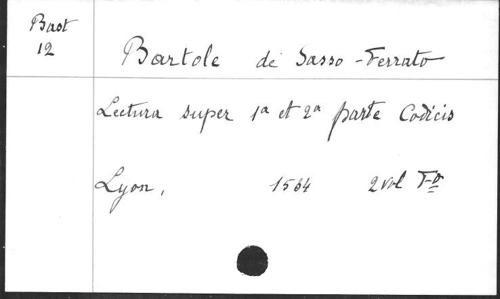 Bast
12
Bartole de Sasso-Ferrato
Lectura super 1a et 2a parte Codicis
Lyon, 1564 2 vol Fo